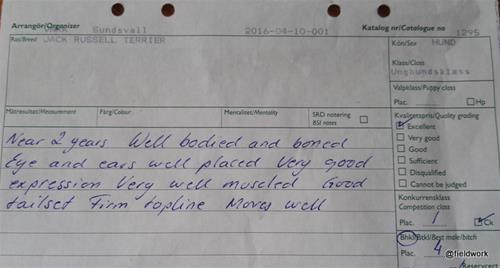 Arrangör/Organizer
Sundsvall
2016-04-10-001
Katalog nr/Catalogue no
1295
Ras/Breed JACK RUSSELL TERRIER
Kön/Sex HUND
Klass/Class
Unghundsklass
Valpklass/Puppy class
Plac. Hp
Mätresultat/Measurement
Färg/Colour
Mentalitet/Mentality
SRD notering
BSI notes
Kvalitetspris/Quality grading
Excellent
Very good
Good
Sufficient
Disqualified
Cannot be judged
Near 2 years Well bodied and boned
Eye and ears well placed Very good
expression Very well muscled Good
tailset Firm topline Moves well
Konkurrensklass
Competition class
Plac. 1 Ck
Bhkl/Btkl/Best male/bitch
Plac. 4
Reservcert
@fieldwork